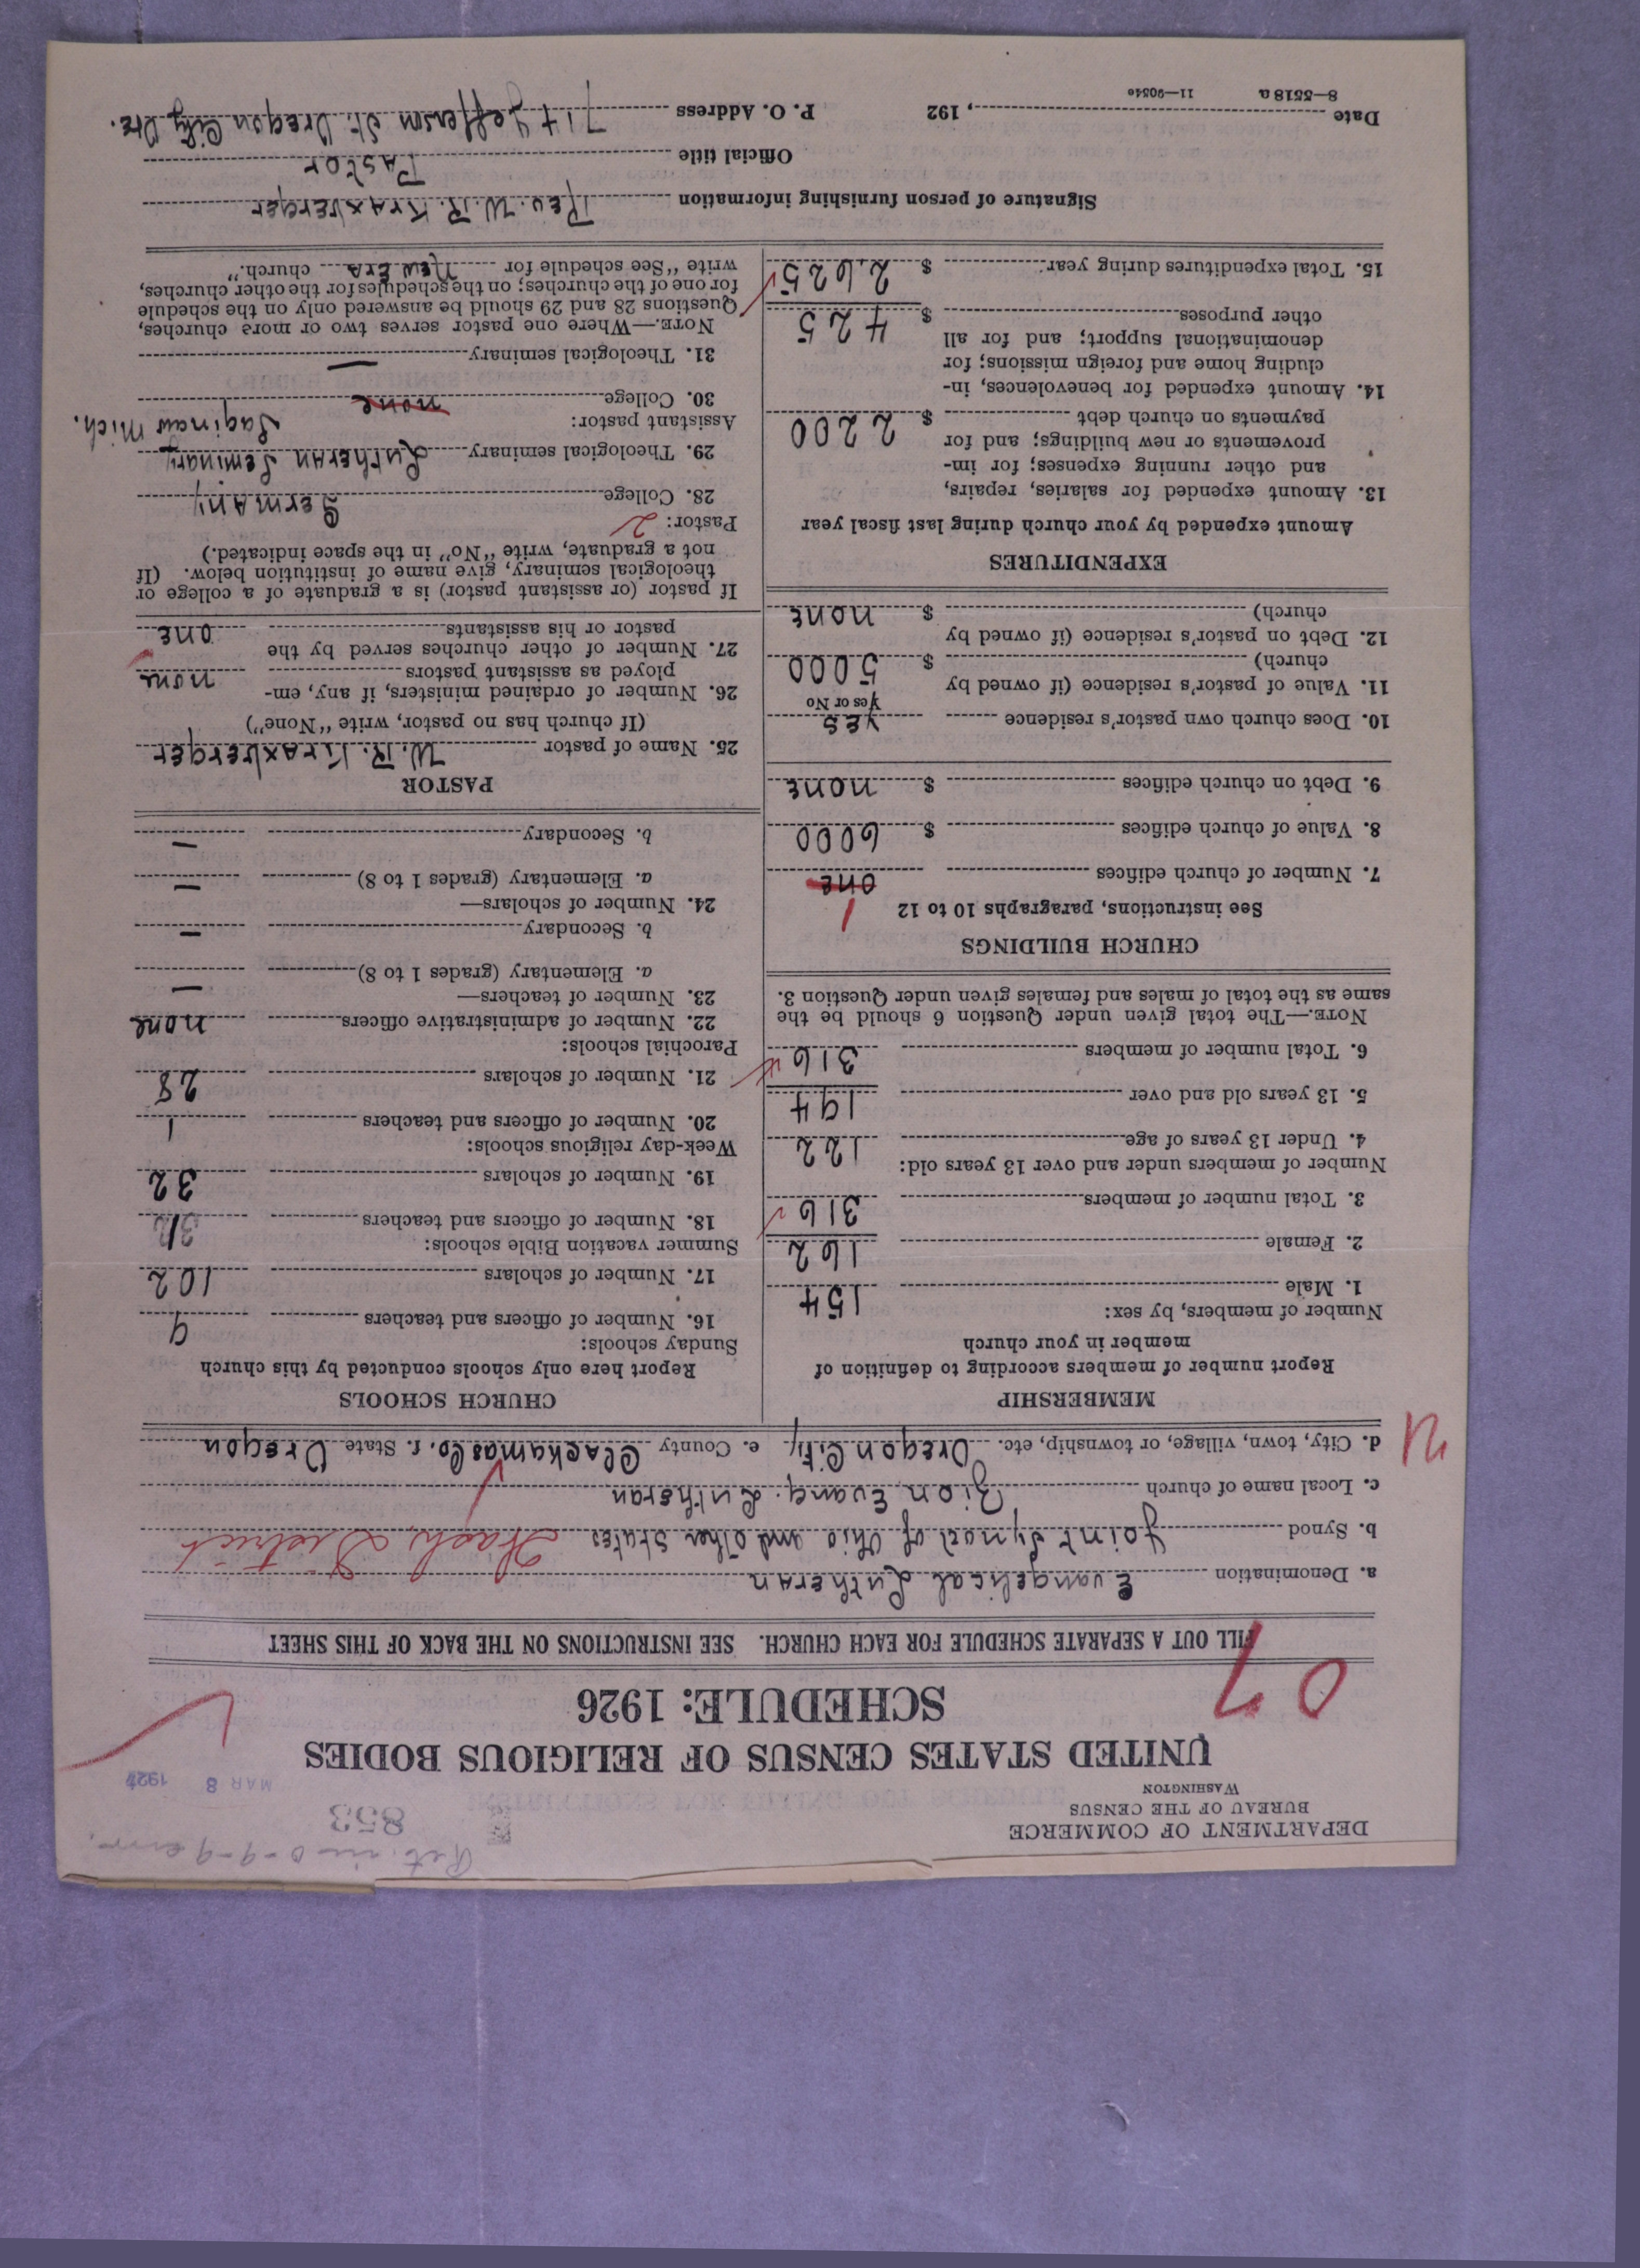 Ret. in 0-9-9
853
MAR 8 1927
DEPARTMENT OF COMMERCE
BUREAU OF THE CENSUS
WASHINGTON
UNITED STATES CENSUS OF RELIGIOUS BODIES
SCHEDULE: 1926
07
FILL OUT A SEPARATE SCHEDULE FOR EACH CHURCH. SEE INSTRUCTIONS ON THE BACK OF THIS SHEET
a. Denomination Evangelical Lutheran
b. Synod Joint Synod of Ohio and other States Wash. District
c. Local name of church Zion Evang. Lutheran
d. City, town, village, or township, etc. Oregon City e. County Clackamas Co. f. State Oregon
MEMBERSHIP
Report number of members according to definition of
member in your church
Number of members, by sex:
1. Male 154
2. Female 162
3. Total number of members 316
Number of members under and over 13 years old:
4. Under 13 years of age 122
5. 13 years old and over 194
6. Total number of members 316
NOTE.—The total given under Question 6 should be the
same as the total of males and females given under Question 3.
CHURCH BUILDINGS
See instructions, paragraphs 10 to 12
1
7. Number of church edifices one
8. Value of church edifices $ 6000
9. Debt on church edifices $ none
10. Does church own pastor's residence yes
Yes or No
11. Value of pastor's residence (if owned by
church) $ 5000
12. Debt on pastor's residence (if owned by
church) $ none
EXPENDITURES
Amount expended by your church during last fiscal year
13. Amount expended for salaries, repairs,
and other running expenses; for im-
provements or new buildings; and for
payments on church debt $ 2200
14. Amount expended for benevolences, in-
cluding home and foreign missions; for
denominational support; and for all
other purposes $ 425
15. Total expenditures during year $ 2625
CHURCH SCHOOLS
Report here only schools conducted by this church
Sunday schools:
16. Number of officers and teachers 9
17. Number of scholars 102
Summer vacation Bible schools:
18. Number of officers and teachers
19. Number of scholars 32
Week-day religious schools:
20. Number of officers and teachers 1
21. Number of scholars 28
Parochial schools:
22. Number of administrative officers none
23. Number of teachers—
a. Elementary (grades 1 to 8) —
b. Secondary —
24. Number of scholars—
a. Elementary (grades 1 to 8) —
b. Secondary —
PASTOR
25. Name of pastor W. R. Kraxberger
(If church has no pastor, write "None")
26. Number of ordained ministers, if any, em-
ployed as assistant pastors none
27. Number of other churches served by the
pastor or his assistants one
If pastor (or assistant pastor) is a graduate of a college or
theological seminary, give name of institution below. (If
not a graduate, write "No" in the space indicated.)
Pastor: 2
28. College Germany
29. Theological seminary Lutheran Seminary
Saginaw Mich.
Assistant pastor:
30. College none
31. Theological seminary —
NOTE.—Where one pastor serves two or more churches,
Questions 28 and 29 should be answered only on the schedule
for one of the churches; on the schedules for the other churches,
write "See schedule for New Era church."
Signature of person furnishing information Rev. W. R. Kraxberger
Official title Pastor
Date , 192 P. O. Address 714 Jefferson St. Oregon City, Ore.
8—5518 a 11—9034e